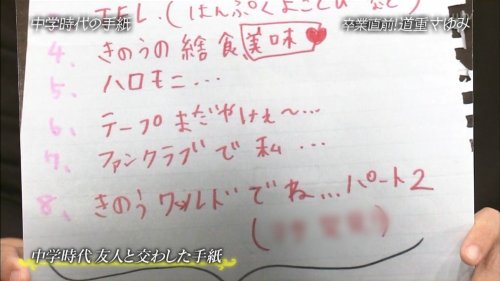 中学時代の手紙
卒業直前!道重さゆみ
TEL.(はんぷくよことび など)
4、きのうの給食美味♥
5、ハロモニ…
6、テープまだやけぇ〜…
7、ファンクラブで私…
8、きのうワールドでね…パート2
中学時代 友人と交わした手紙